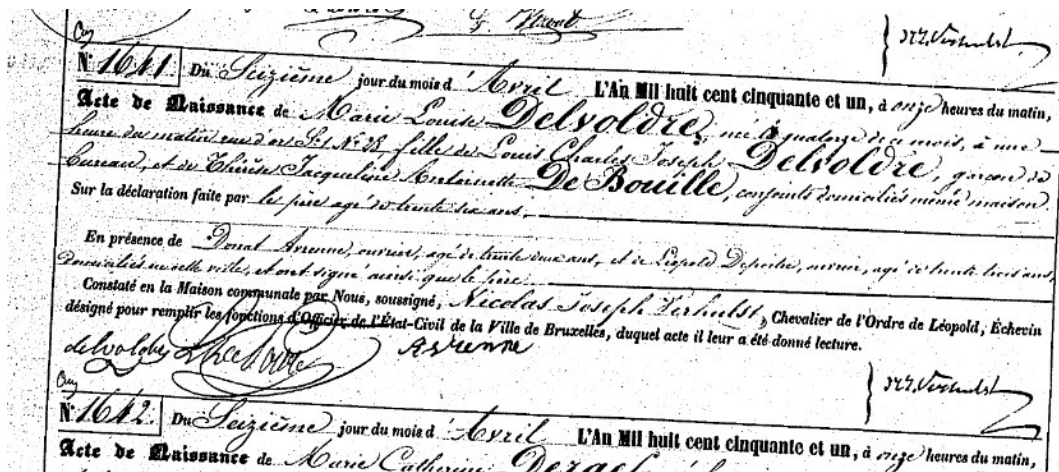 N.J. Verhulst
N° 1641. Du Seizième jour du mois d'Avril L'An Mil huit cent cinquante et un, à onze heures du matin,
Acte de Naissance de Marie Louise Delvoldre, née le quatorze du mois, à une
heure du matin rue d'or S.1 N° 28 fille de Louis Charles Joseph Delvoldre, garçon de
bureau, et de Thérèse Jacqueline Antoinette De Bouille, conjoints domiciliés même maison.
Sur la déclaration faite par le père agé de trente six ans.
En présence de Donat Avienne, ouvrier, agé de trente deux ans, et de Léopold, agé de trente trois ans,
domiciliés en cette ville, et ont signé ainsi que le père.
Constaté en la Maison communale par Nous, soussigné, Nicolas Joseph Verhulst, Chevalier de l'Ordre de Léopold, Échevin
désigné pour remplir les fonctions d'Officier de l'État-Civil de la Ville de Bruxelles, duquel acte il leur a été donné lecture.
Avienne
N.J. Verhulst
N° 1642. Du Seizième jour du mois d'Avril L'An Mil huit cent cinquante et un, à onze heures du matin,
Acte de Naissance de Marie Catherine